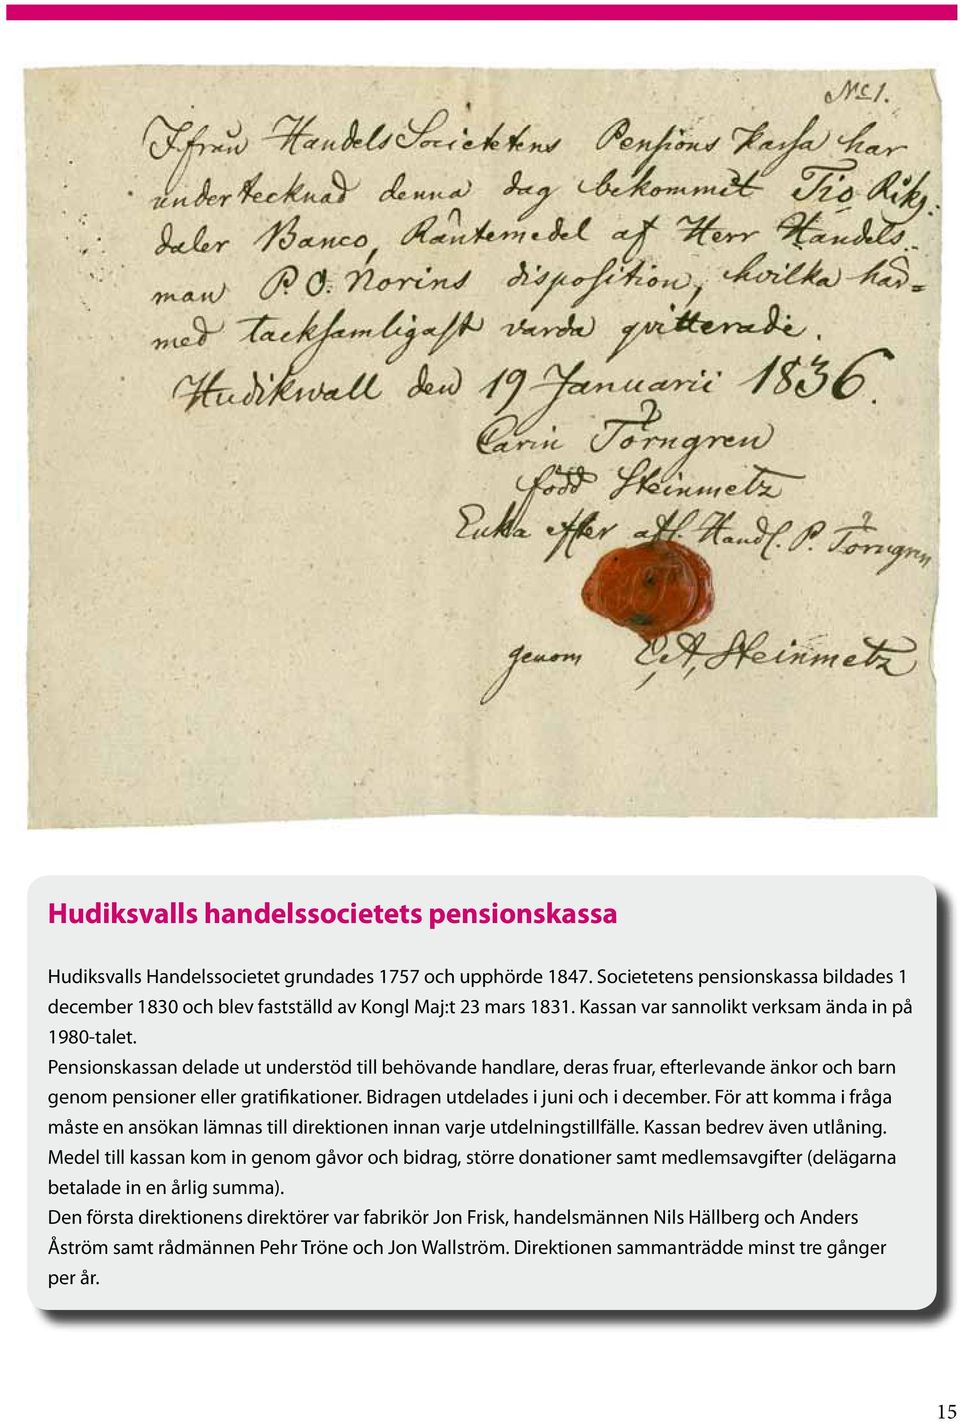 No 1.
Ifrån Handels Societetens Pensions Kassa har
undertecknad denna dag bekommit Tio Riks-
daler Banco, Räntemedel af Herr Handels-
man P. O. Norins disposition, hvilka här=
med tacksamligast varda qvitterade.
Hudikwall den 19 Januarii 1836.
Carin Törngren
född Steinmetz
Enka efter afl. Handl. P. Törngren
genom E. A. Steinmetz
Hudiksvalls handelssocietets pensionskassa
Hudiksvalls Handelssocietet grundades 1757 och upphörde 1847. Societetens pensionskassa bildades 1
december 1830 och blev fastställd av Kongl Maj:t 23 mars 1831. Kassan var sannolikt verksam ända in på
1980-talet.
Pensionskassan delade ut understöd till behövande handlare, deras fruar, efterlevande änkor och barn
genom pensioner eller gratifikationer. Bidragen utdelades i juni och i december. För att komma i fråga
måste en ansökan lämnas till direktionen innan varje utdelningstillfälle. Kassan bedrev även utlåning.
Medel till kassan kom in genom gåvor och bidrag, större donationer samt medlemsavgifter (delägarna
betalade in en årlig summa).
Den första direktionens direktörer var fabrikör Jon Frisk, handelsmännen Nils Hällberg och Anders
Åström samt rådmännen Pehr Tröne och Jon Wallström. Direktionen sammanträdde minst tre gånger
per år.
15